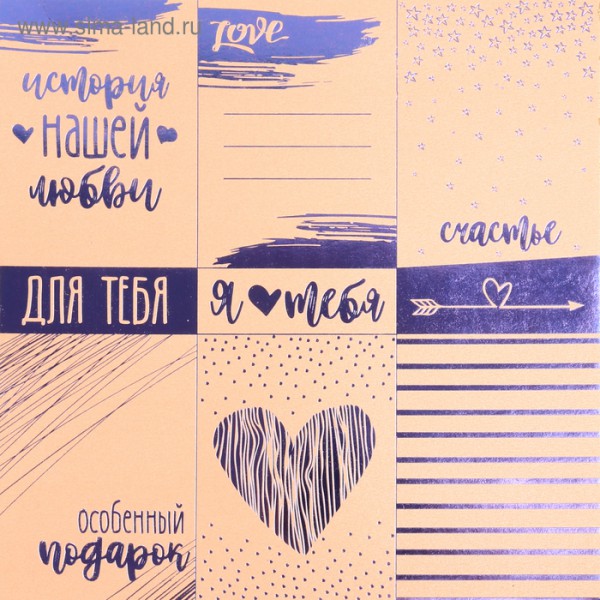 www.sima-land.ru
история
нашей
любви
Love
счастье
ДЛЯ ТЕБЯ
я тебя
особенный
подарок